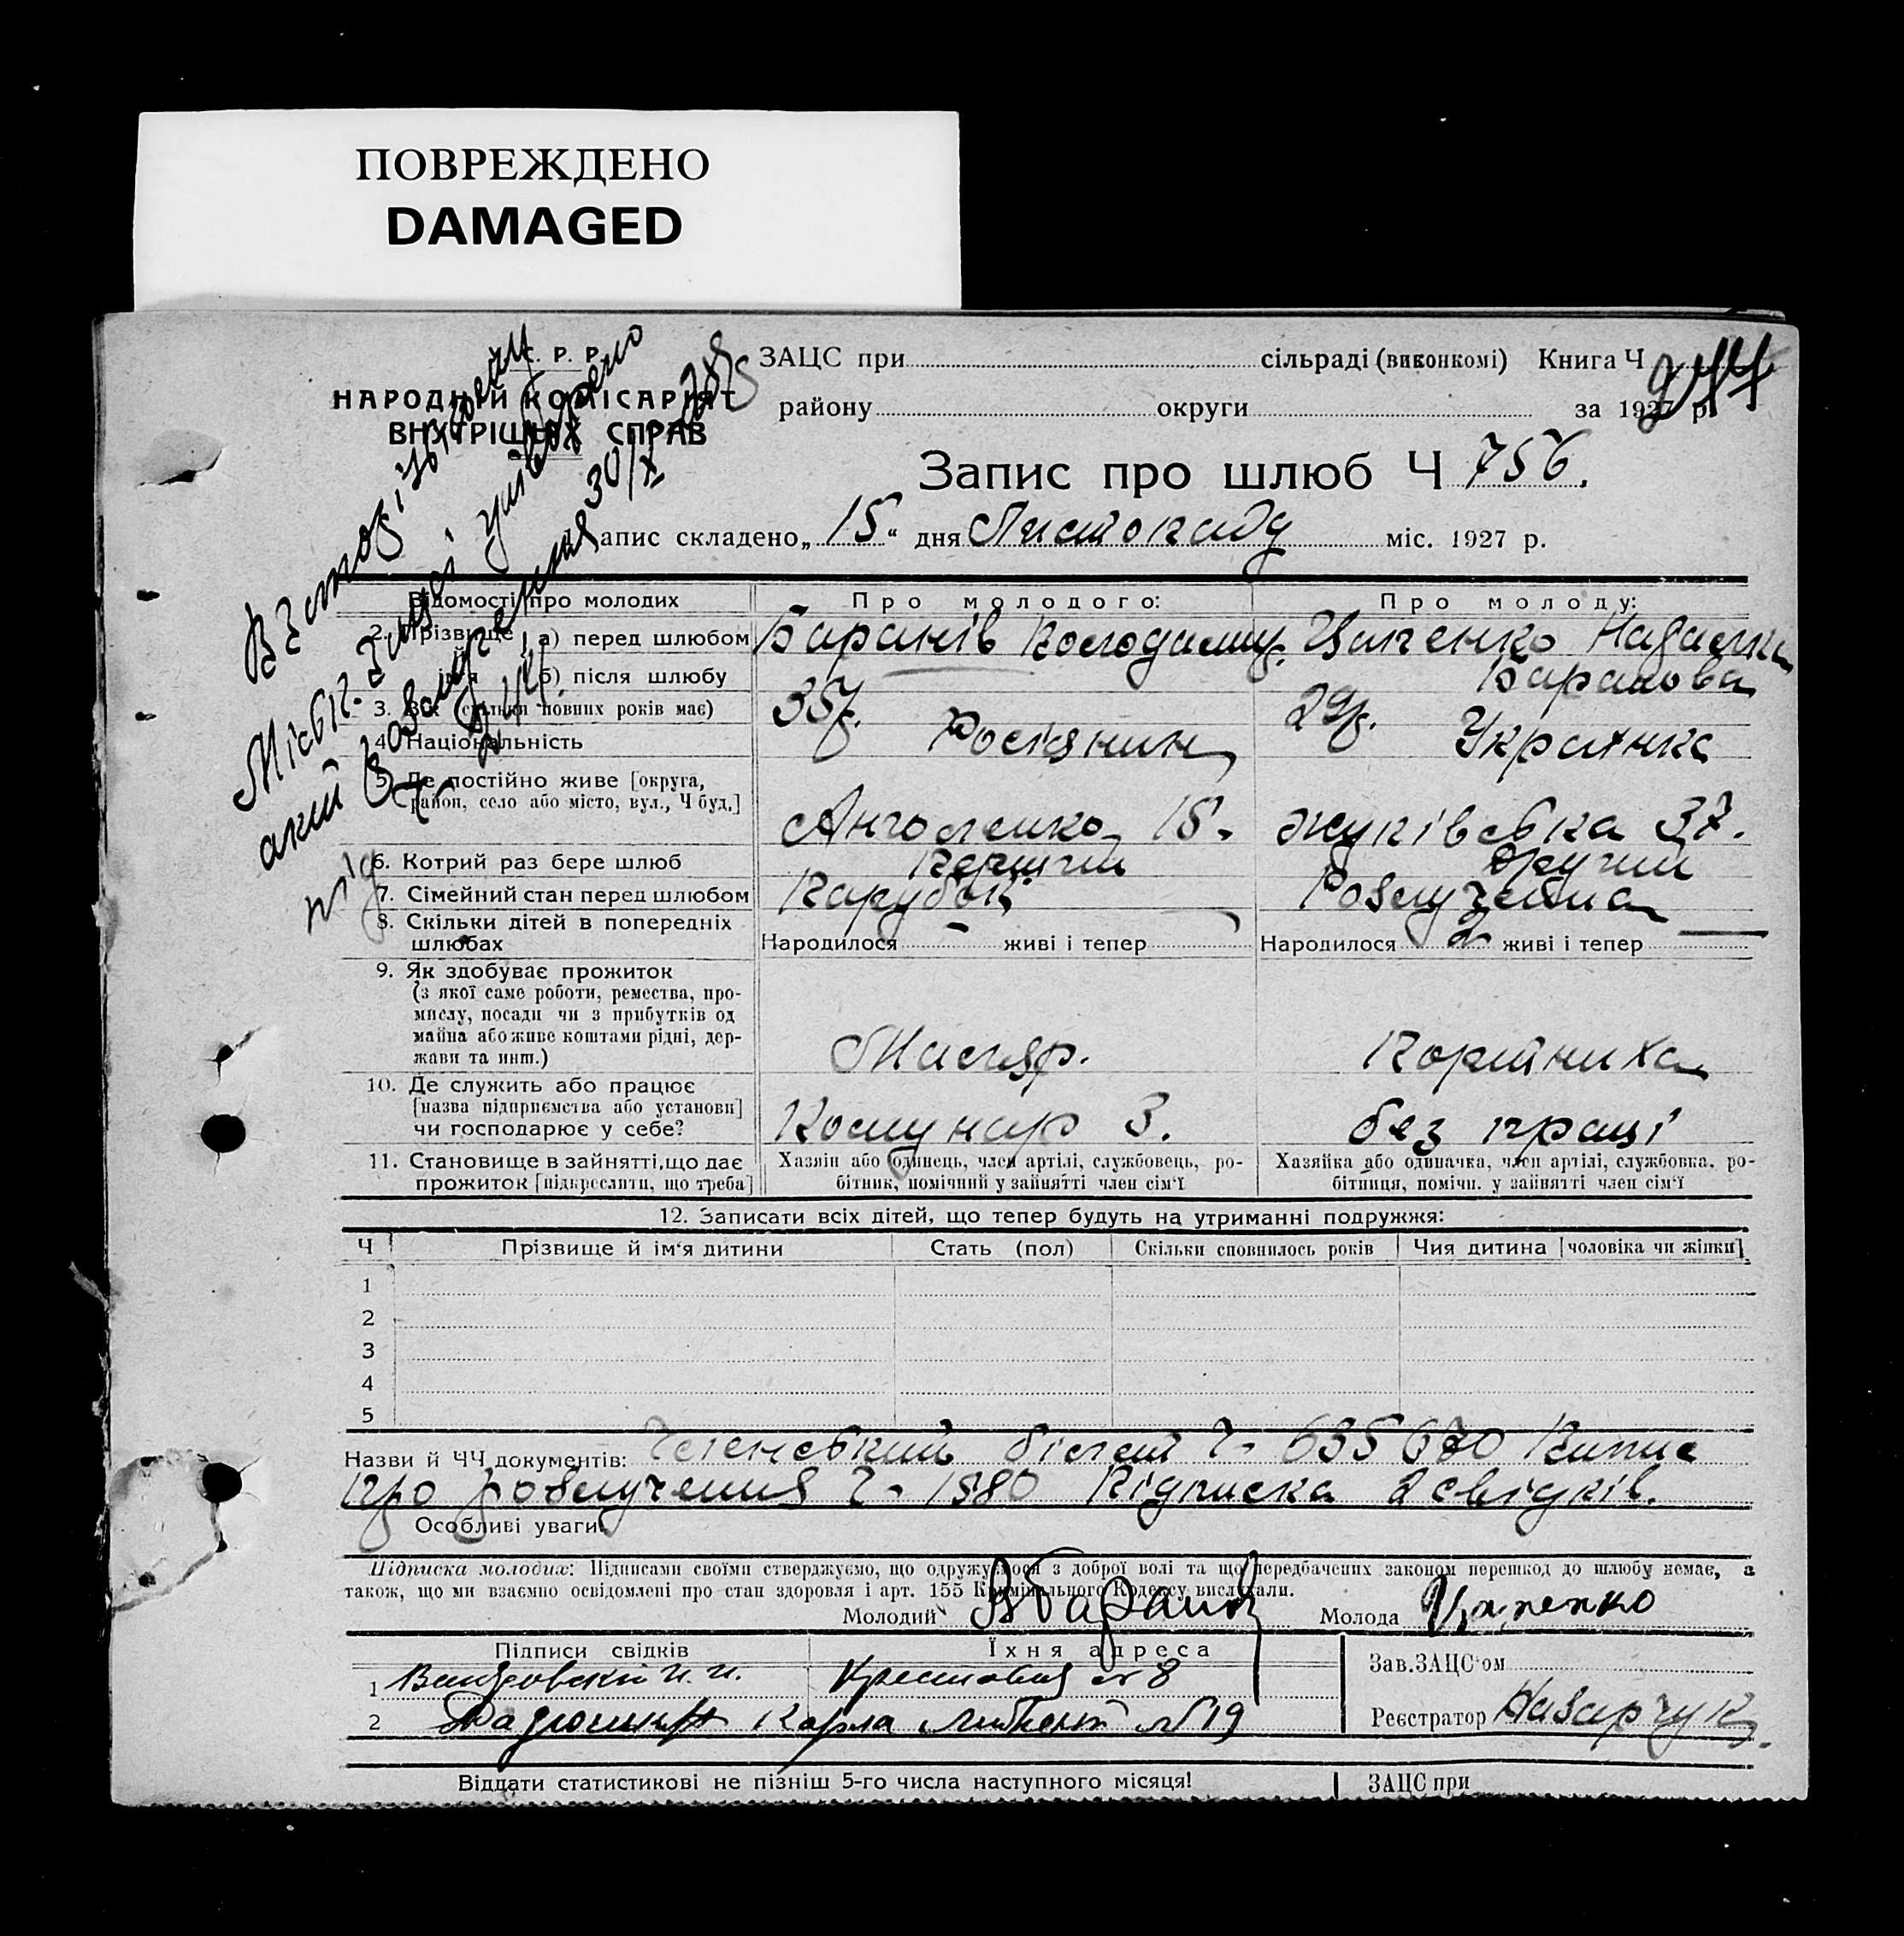 ПОВРЕЖДЕНО
DAMAGED
С. Р. Р.
НАРОДНІЙ КОМІСАРІЯТ
ВНУТРІШНІХ СПРАВ
ЗАЦС при сільраді (виконкомі) Книга Ч
району округи за 1927 р.
244
Запис про шлюб Ч 756.
Запис складено „15" дня Листопаду міс. 1927 р.
30/X
Відомості про молодих Про молодого: Про молоду:
2. Прізвище а) перед шлюбом Баранів Володимир. Цапенко Надашка
ім'я б) після шлюбу Баранова
3. Вік (скільки повних років має) 35р. 29р.
4. Національність Росіянин Українка
5. Де постійно живе [округа,
район, село або місто, вул., Ч буд.] 15. Жуківська 37.
6. Котрий раз бере шлюб Перший другий
7. Сімейний стан перед шлюбом Парубок Розлучена
8. Скільки дітей в попередніх
шлюбах Народилося - живі і тепер Народилося 2 живі і тепер
9. Як здобуває прожиток
(з якої саме роботи, ремества, про-
мислу, посади чи з прибутків од
майна або живе коштами рідні, дер-
жави та инш.) Маляр. Портниха
10. Де служить або працює
[назва підприємства або установи]
чи господарює у себе? Комунар 3. без праці
11. Становище в зайнятті, що дає Хазяїн або одинець, член артілі, службовець, ро- Хазяйка або одиначка, член артілі, службовка, ро-
прожиток [підкреслити, що треба] бітник, помічний у зайнятті член сім'ї бітниця, помічн. у зайнятті член сім'ї
12. Записати всіх дітей, що тепер будуть на утриманні подружжя:
Ч Прізвище й ім'я дитини Стать (пол) Скільки сповнилось років Чия дитина [чоловіка чи жінки]
1
2
3
4
5
Назви й ЧЧ документів: Членський білет Ч- 635670 Випис
про розлучення Ч- 1580 Підписка 2 свідків.
Особливі уваги:
Підписка молодих: Підписами своїми стверджуємо, що одружуємося з доброї волі та що передбачених законом перешкод до шлюбу немає, а
також, що ми взаємно освідомлені про стан здоровля і арт. 155 Кримінального Кодексу вислухали.
Молодий ВБаранов Молода Цапенко
Підписи свідків Їхня адреса
1 №8 Зав. ЗАЦС'ом
2 Карла Либкнехт №19 Реєстратор Назарчук
Віддати статистикові не пізніш 5-го числа наступного місяця! ЗАЦС при